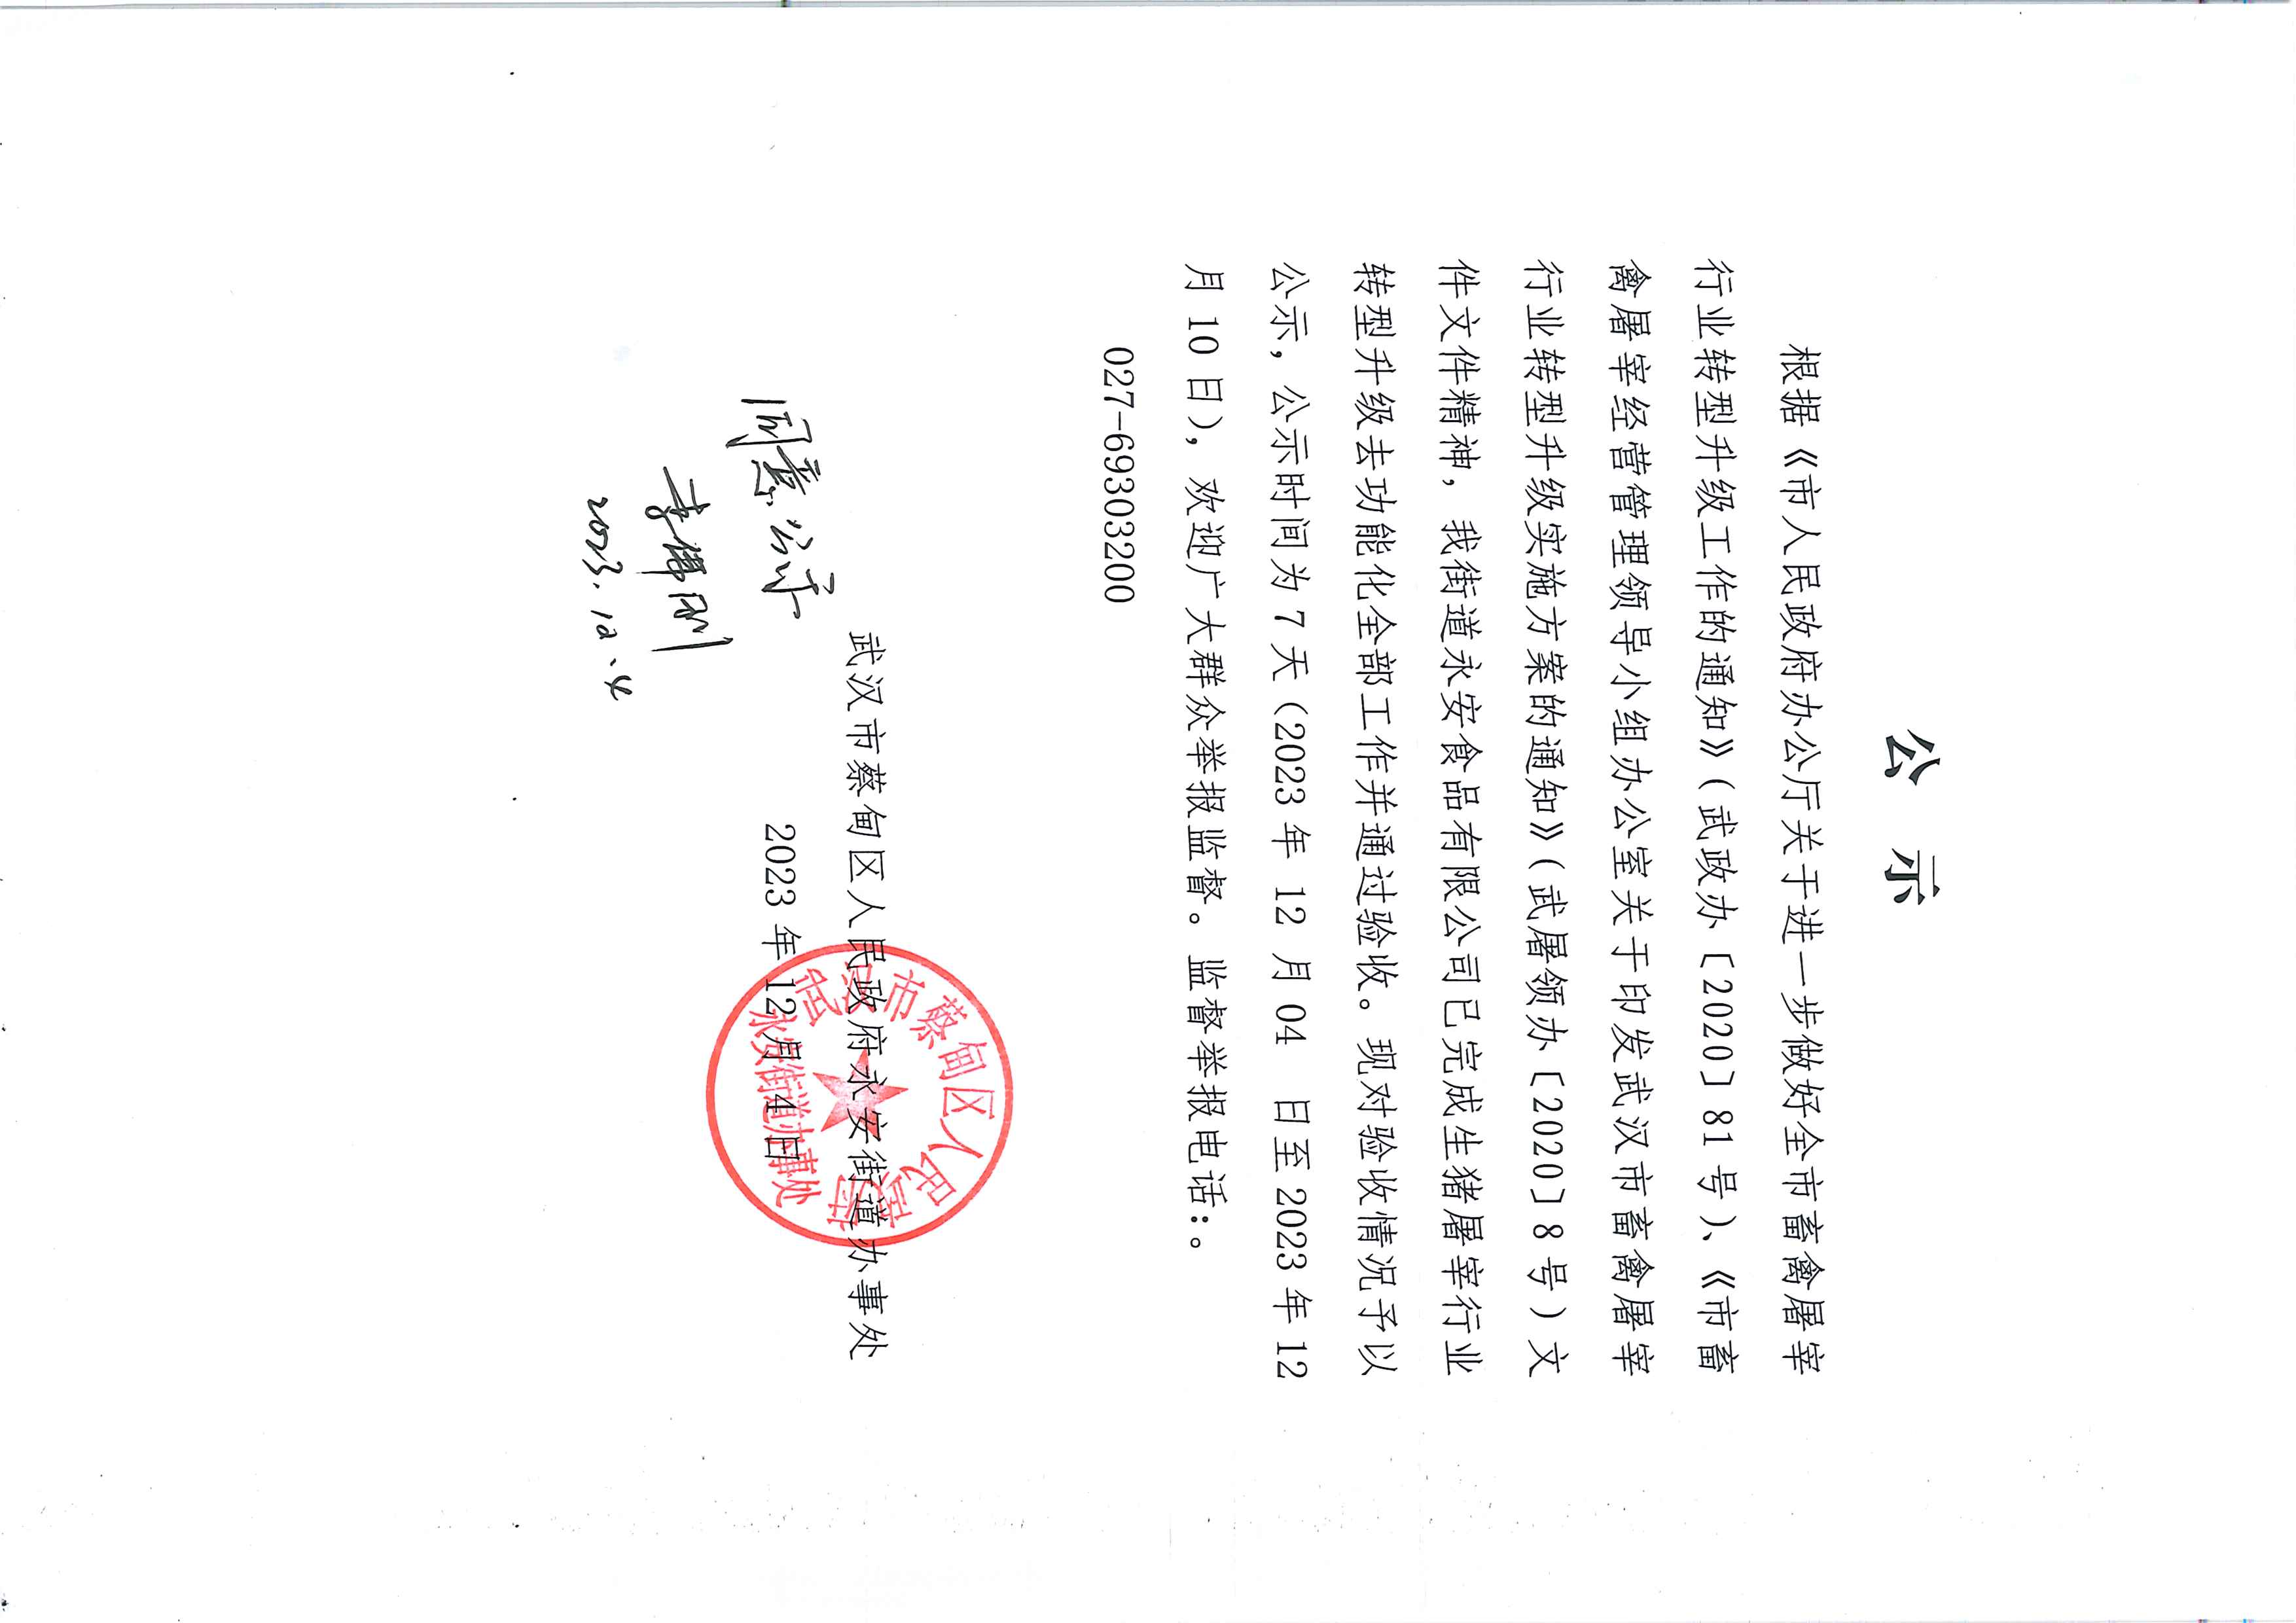 公 示
根据《市人民政府办公厅关于进一步做好全市畜禽屠宰
行业转型升级工作的通知》（武政办〔2020〕81号）、《市畜
禽屠宰经营管理领导小组办公室关于印发武汉市畜禽屠宰
行业转型升级实施方案的通知》（武屠领办〔2020〕8号）文
件文件精神，我街道永安食品有限公司已完成生猪屠宰行业
转型升级去功能化全部工作并通过验收。现对验收情况予以
公示，公示时间为7天（2023年12月04 日至2023年12
月10日），欢迎广大群众举报监督。监督举报电话:。
027-69303200
武汉市蔡甸区人民政府永安街道办事处
2023年12月4日
武汉市蔡甸区人民政府
永安街道办事处
同意公示
2023.12.4